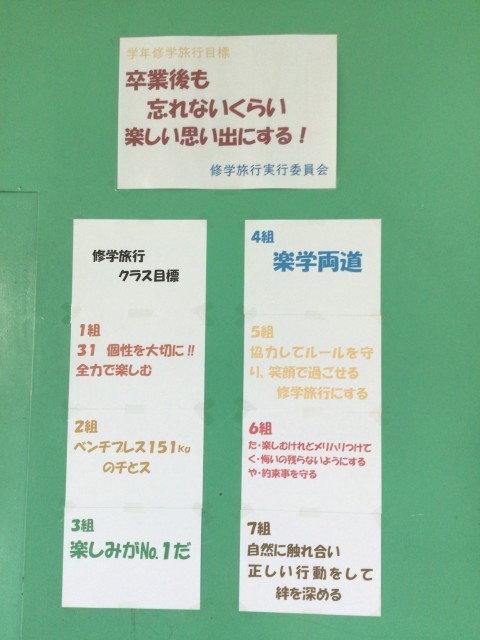 学年修学旅行目標
卒業後も
忘れないくらい
楽しい思い出にする！
修学旅行実行委員会
修学旅行
クラス目標
1組
31 個性を大切に!!
全力で楽しむ
2組
ベンチプレス151kg
のチとス
3組
楽しみがNo.1だ
4組
楽学両道
5組
協力してルールを守
り、笑顔で過ごせる
修学旅行にする
6組
た・楽しむけれどメリハリつけて
く・悔いの残らないようにする
や・約束事を守る
7組
自然に触れ合い
正しい行動をして
絆を深める